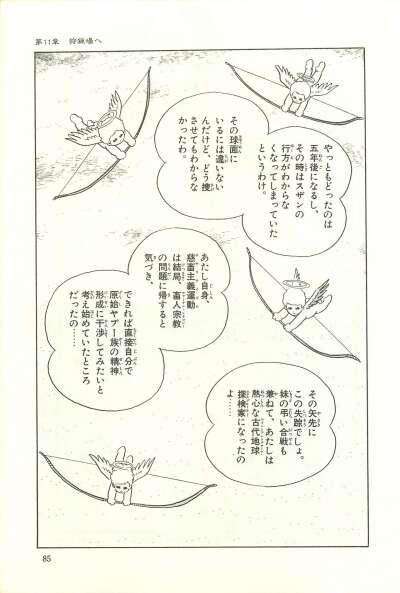 第11章 狩猟場へ
やっともどったのは
五年後になるし、
その時はスザンの
行方がわからな
くなってしまっていた
というわけ。
その球面に
いるには違いない
んだけど、どう捜
させてもわからな
かったわ。
あたし自身、
慈畜主義運動
は結局、畜人宗教
の問題に帰すると
気づき、
できれば直接自分で
原始ヤプー族の精神
形成に干渉してみたいと
考え始めていたところ
だったの……
その矢先に
この失踪でしょ。
妹の弔い合戦も
兼ねて、あたしは
熱心な古代地球
探検家になったの
よ……
85